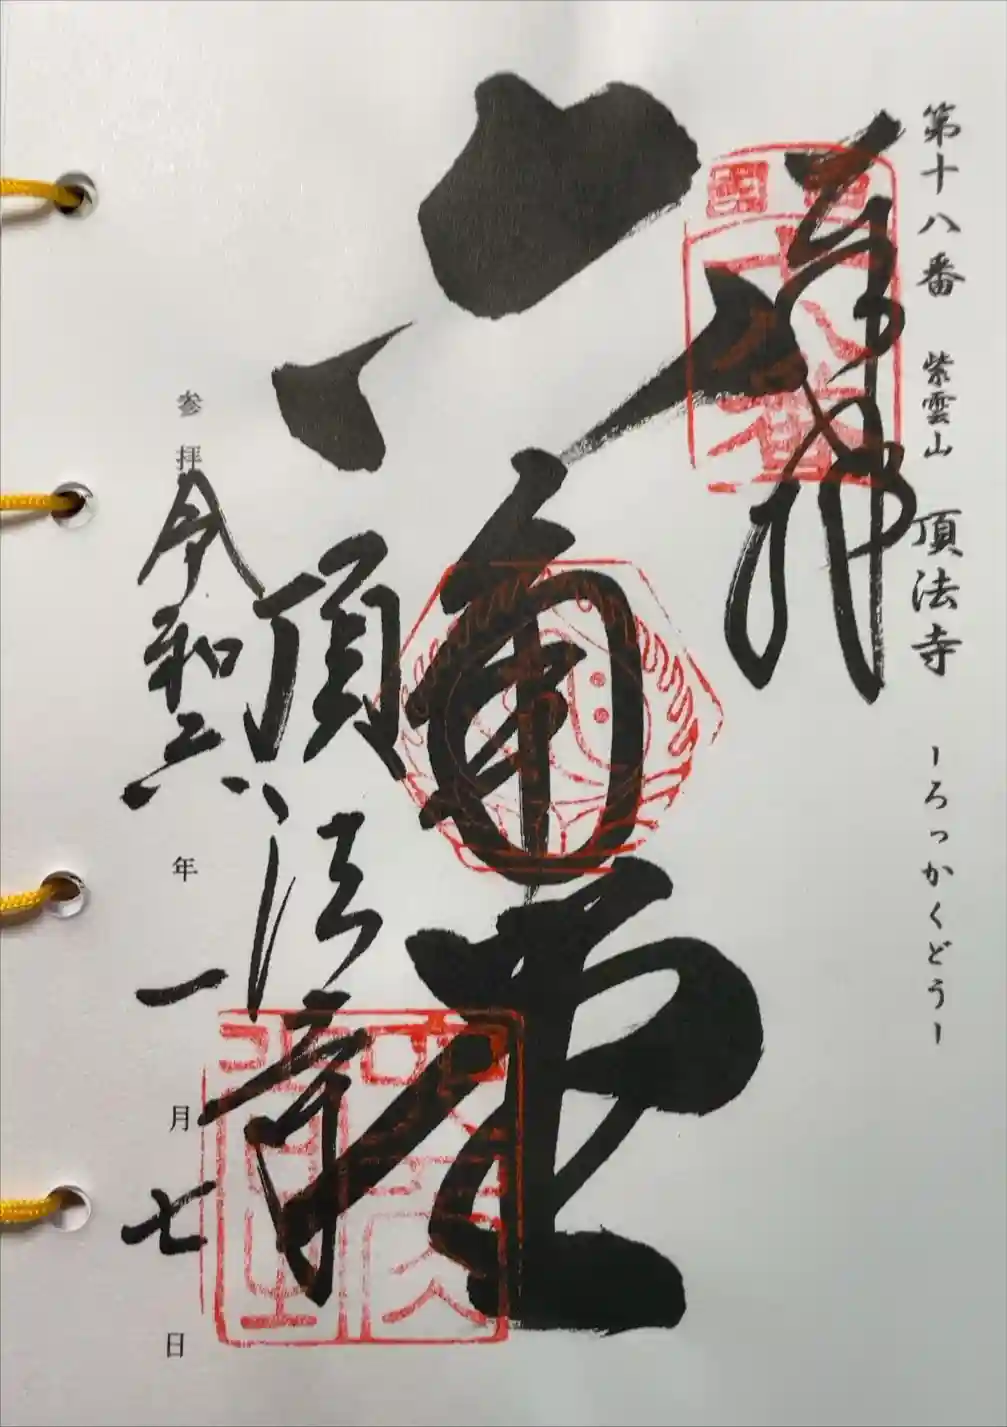 第十八番 紫雲山 頂法寺 ーろっかくどうー
奉拝
六角堂
頂法寺
参拝 令和六年一月七日